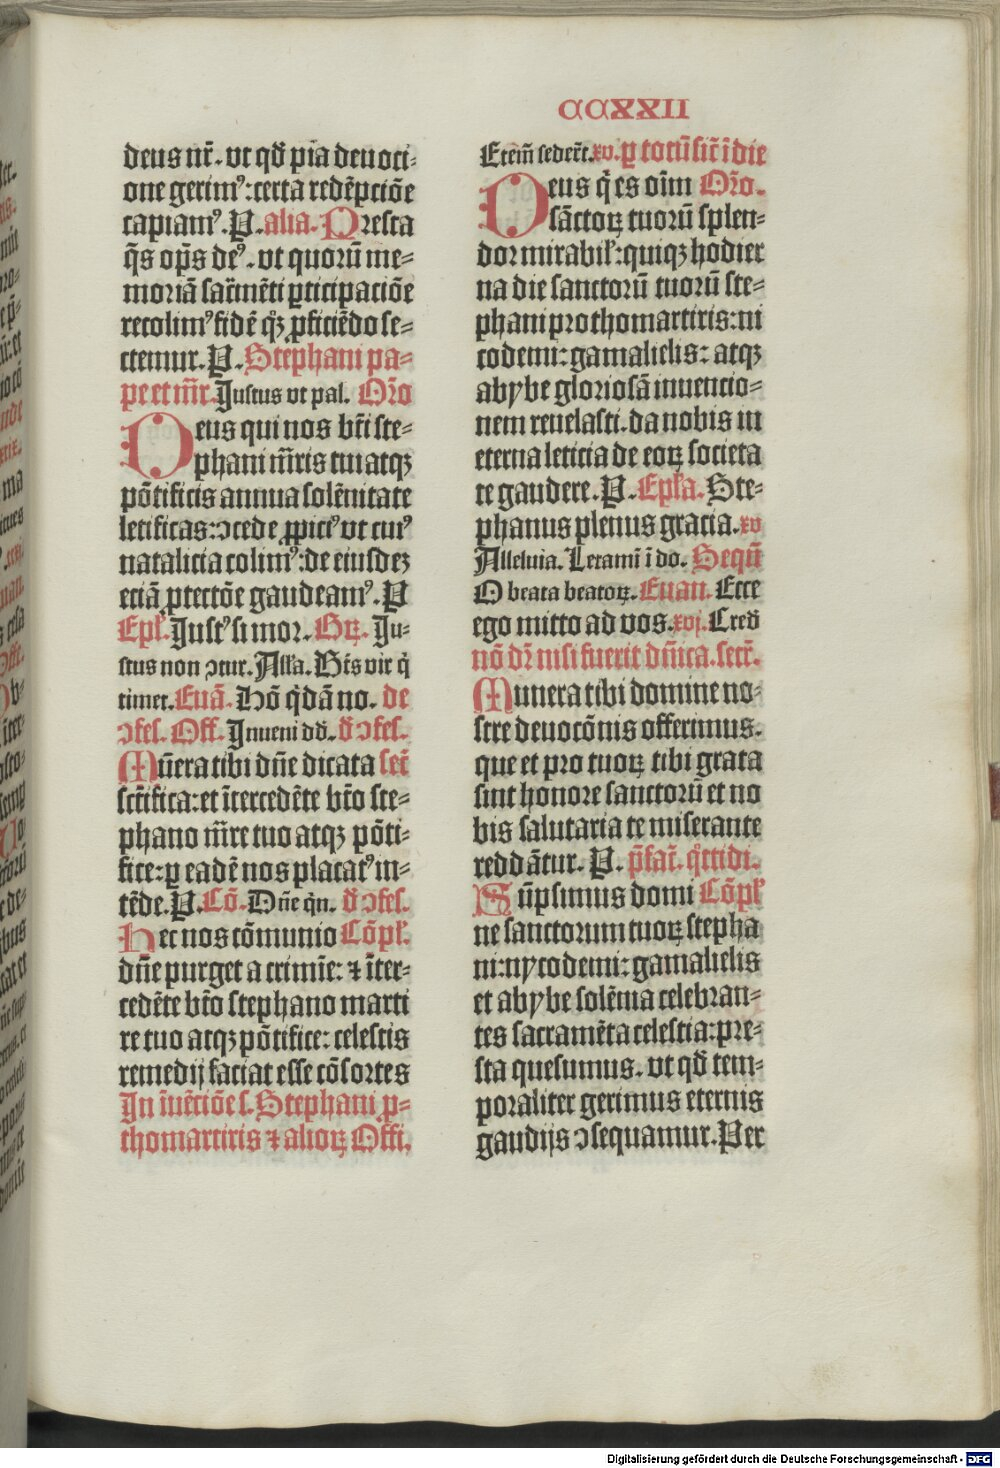 CCXXII
deus nr̃. vt qd̃ pia deuoti-
one gerimꝰ: certa redẽpciõe
capiamꝰ. P. alia. Presta
q̃s op̃s deꝰ. vt quorũ me-
moriã sac̃mẽti ꝑticipaciõe
recolimꝰ fidẽ qꝫ ꝓficiẽdo se-
ctemur. P. Stephani pa-
pe et mr̃. Justus vt pal. Or̃o
Deus qui nos bt̃i ste-
phani mr̃is tui atqꝫ
põtificis annua solẽnitate
letificas: ↄcede ꝓpiciꝰ vt cuiꝰ
natalicia colimꝰ: de eiusdeꝫ
eciã ꝓtectõe gaudeamꝰ. P
Epl̃. Justꝰ si mor. Gꝝ. Ju-
stus non ↄtur. All̃a. Bt̃s vir q̃
timet. Euã. Hõ q̃dã no. de
ↄfes. Off. Inueni dd̃. d̃ ↄfes.
Mũera tibi dñe dicata secr̃
sct̃ifica: et ĩtercedẽte bt̃o ste-
phano mr̃e tuo atqꝫ põti-
fice: ꝑ eadẽ nos placatꝰ in-
tẽde. P. Cõ. Dñe q̃n. d̃ ↄfes.
Hec nos cõmunio Cõpl̃.
dñe purget a crimĩe: ⁊ ĩter-
cedẽte bt̃o stephano marti
re tuo atqꝫ põtifice: celestis
remedij faciat esse cõsortes
In ĩuẽciõe s. Stephani ꝑ-
thomartiris ⁊ alioꝝ Offi.
Etem̃ seder̃t. xv. ꝑ totũ sic̃ ĩ die
Deus q̃ es oĩm Or̃o.
sãctoꝝ tuorũ splen-
dor mirabil̃: quiqꝫ hodier
na die sanctorũ tuorũ ste-
phani prothomartiris: ni
codemi: gamalielis: atqꝫ
abybe gloriosã inuencio-
nem reuelasti. da nobis in
eterna leticia de eoꝝ societa
te gaudere. P. Epl̃a. Ste-
phanus plenus gracia. xv
Alleluia. Letami ĩ do. Seqũ
O beata beatoꝝ. Euan. Ecce
ego mitto ad vos. xvj. Cred̃
nõ dr̃ nisi fuerit dñica. secr̃.
Munera tibi domine no-
stre deuocõnis offerimus.
que et pro tuoꝝ tibi grata
sint honore sanctorũ et no
bis salutaria te miserante
reddãtur. P. p̃fac̃. q̃ttidi.
Sũpsimus domi Cõpl̃
ne sanctorum tuoꝝ stepha
ni: nycodemi: gamalielis
et abybe solẽnia celebran-
tes sacramẽta celestia: pre-
sta quesumus. vt qd̃ tem-
poraliter gerimus eternis
gaudijs ↄsequamur. Per
Digitalisierung gefördert durch die Deutsche Forschungsgemeinschaft - DFG